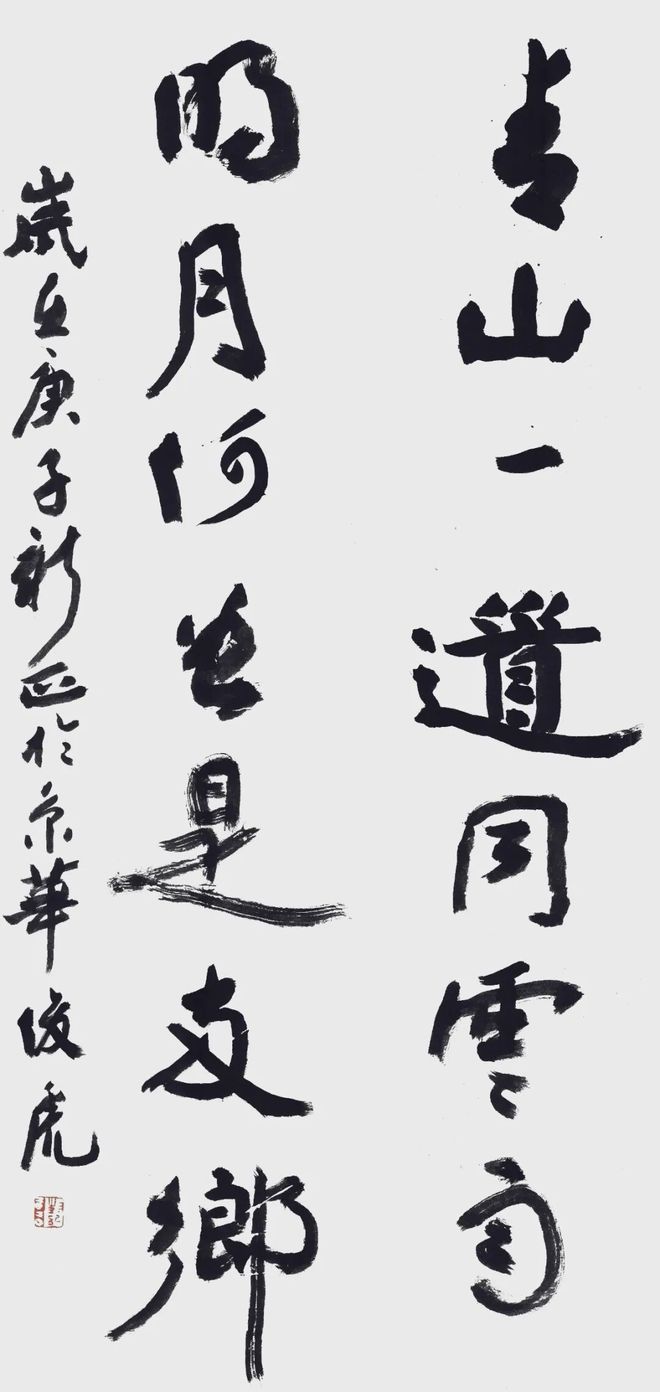 青山一道同雲雨
明月何曾是兩鄉
歲在庚子新正於京華俊虎